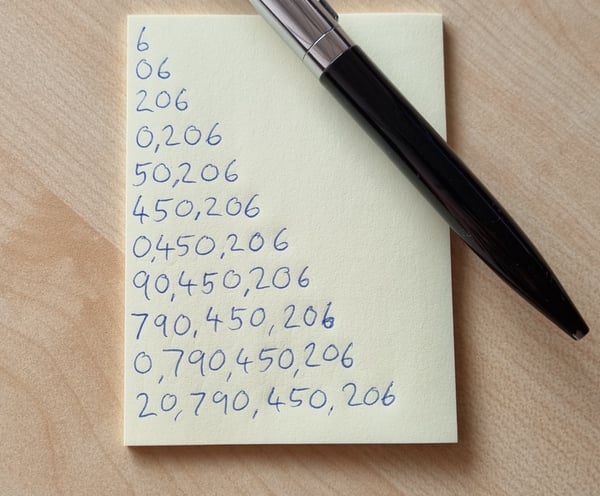 6
06
206
0,206
50,206
450,206
0,450,206
90,450,206
790,450,206
0,790,450,206
20,790,450,206